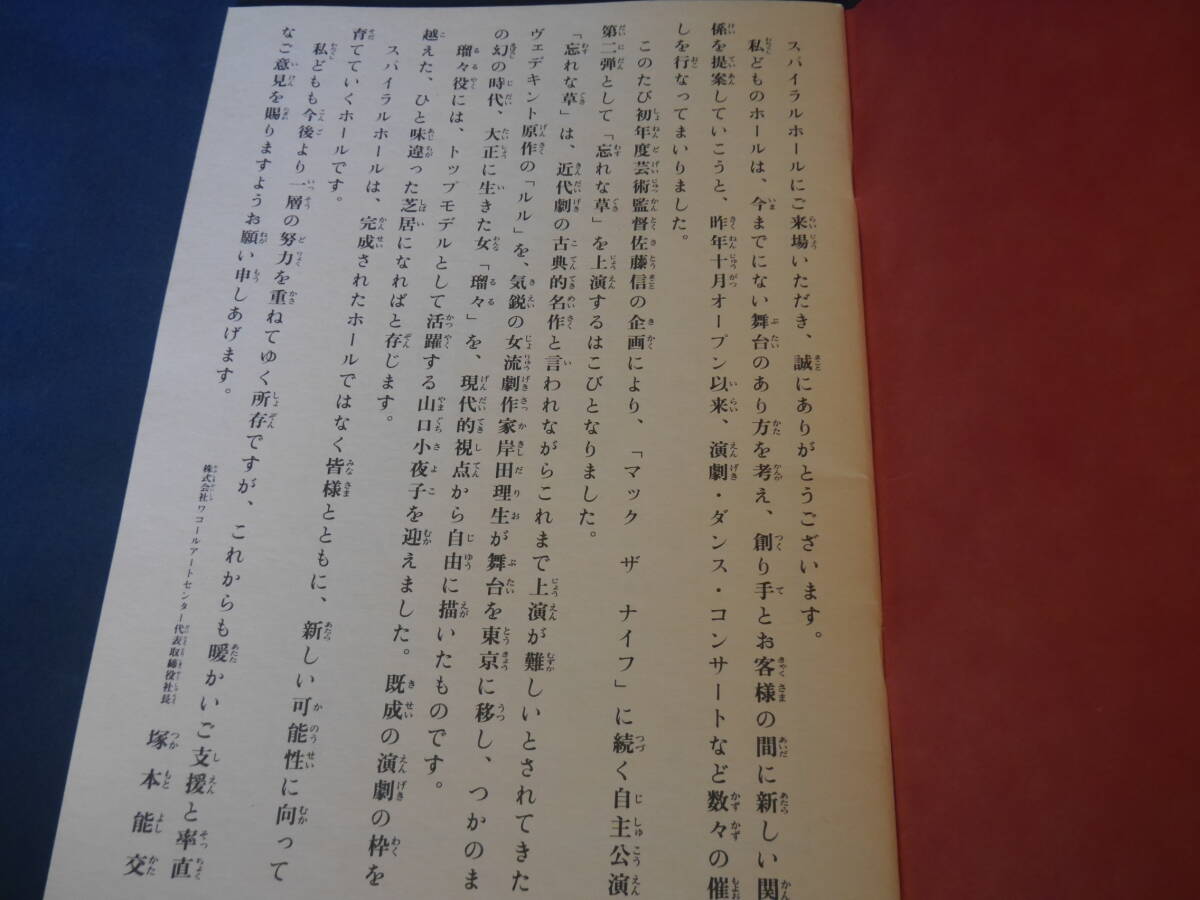 スパイラルホールにご来場いただき、誠にありがとうございます。
私どものホールは、今までにない舞台のあり方を考え、創り手とお客様の間に新しい関
係を提案していこうと、昨年十月オープン以来、演劇・ダンス・コンサートなど数々の催
しを行なってまいりました。
このたび初年度芸術監督佐藤信の企画により、「マック ザ ナイフ」に続く自主公演
第二弾として「忘れな草」を上演するはこびとなりました。
「忘れな草」は、近代劇の古典的名作と言われながらこれまで上演が難しいとされてきた
ヴェデキント原作の「ルル」を、気鋭の女流劇作家岸田理生が舞台を東京に移し、つかのま
の幻の時代、大正に生きた女「瑠々」を、現代的視点から自由に描いたものです。
瑠々役には、トップモデルとして活躍する山口小夜子を迎えました。既成の演劇の枠を
越えた、ひと味違った芝居になればと存じます。
スパイラルホールは、完成されたホールではなく皆様とともに、新しい可能性に向って
育てていくホールです。
私どもも今後より一層の努力を重ねてゆく所存ですが、これからも暖かいご支援と率直
なご意見を賜りますようお願い申しあげます。
株式会社ワコールアートセンター代表取締役社長 塚本能交